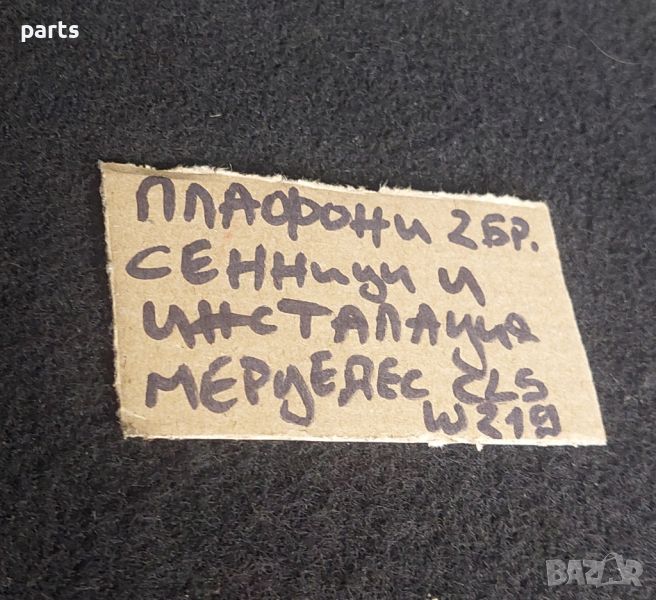 parts
ПЛАФОНИ 2БР.
СЕННИЦИ И
ИНСТАЛАЦИЯ
МЕРЦЕДЕС CLS
W219
BAZAR